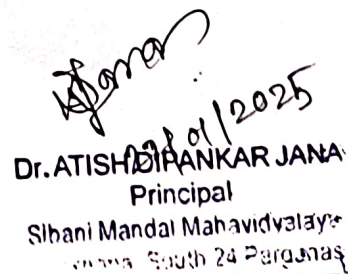 Jana
01/2025
Dr. ATISH DIPANKAR JANA
Principal
Sibani Mandal Mahavidyalaya
South 24 Parganas